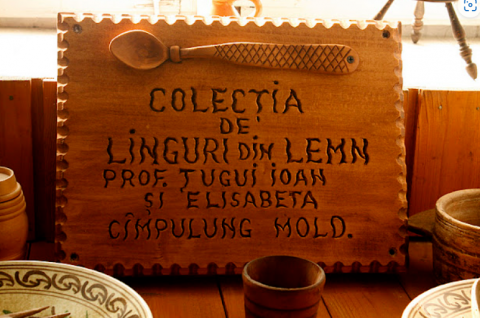 COLECȚIA
DE
LINGURI DIN LEMN
PROF. ȚUGUI IOAN
ȘI ELISABETA
CÎMPULUNG MOLD.